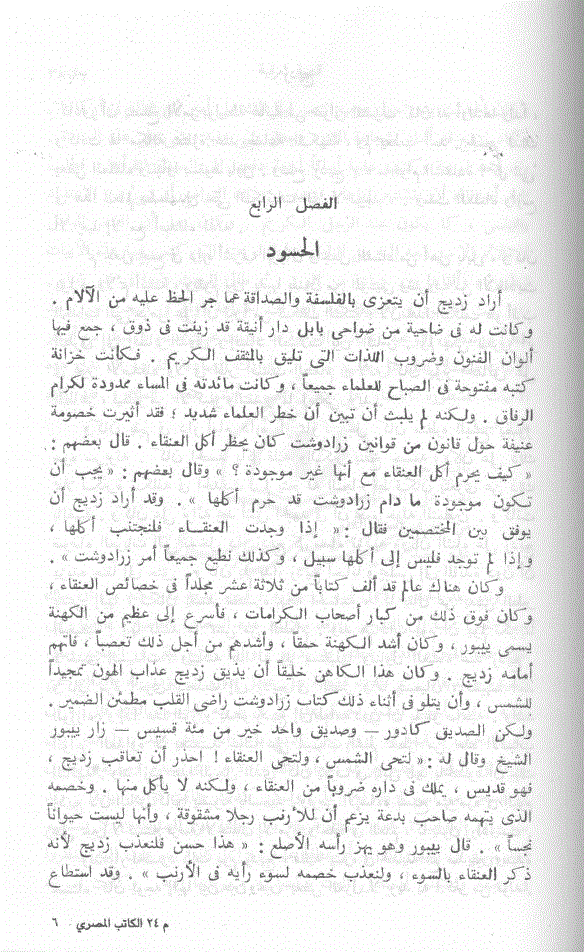 الفصل الرابع
الحسود
أراد زديج أن يتعزى بالفلسفة والصداقة عما جر الحظ عليه من الآلام .
وكانت له فى ضاحية من ضواحى بابل دار أنيقة قد زينت فى ذوق ، جمع فيها
ألوان الفنون وضروب اللذات التى تليق بالمثقف الكريم . فكانت خزانة
كتبه مفتوحة فى الصباح للعلماء جميعاً ، وكانت مائدته فى المساء ممدودة لكرام
الرفاق . ولكنه لم يلبث أن تبين أن خطر العلماء شديد ؛ فقد أثيرت خصومة
عنيفة حول قانون من قوانين زرادوشت كان يحظر أكل العنقاء . قال بعضهم :
« كيف يحرم أكل العنقاء مع أنها غير موجودة ؟ » وقال بعضهم : « يجب أن
تكون موجودة ما دام زرادوشت قد حرم أكلها » . وقد أراد زديج أن
يوفق بين المختصمين فقال : « إذا وجدت العنقاء فلنجتنب أكلها ،
وإذا لم توجد فليس إلى أكلها سبيل ، وكذلك نطيع جميعاً أمر زرادوشت » .
وكان هناك عالم قد ألف كتاباً من ثلاثة عشر مجلداً فى خصائص العنقاء ،
وكان فوق ذلك من كبار أصحاب الكرامات ، فأسرع إلى عظيم من الكهنة
يسمى ييبور ، وكان أشد الكهنة حمقاً ، وأشدهم من أجل ذلك تعصباً ، فاتهم
أمامه زديج . وكان هذا الكاهن خليقاً أن يذيق زديج عذاب الهون تمجيداً
للشمس ، وأن يتلو فى أثناء ذلك كتاب زرادوشت راضى القلب مطمئن الضمير .
ولكن الصديق كادور – وصديق واحد خير من مئة قسيس – زار ييبور
الشيخ وقال له : « لتحى الشمس ، ولتحى العنقاء ! احذر أن تعاقب زديج ،
فهو قديس ، يملك فى داره ضروباً من العنقاء ، ولكنه لا يأكل منها . وخصمه
الذى يتهمه صاحب بدعة يزعم أن للأرنب رجلا مشقوقة ، وأنها ليست حيواناً
نجساً » . قال ييبور وهو يهز رأسه الأصلع : « هذا حسن فلنعذب زديج لأنه
ذكر العنقاء بالسوء ، ولنعذب خصمه لسوء رأيه فى الأرنب » . وقد استطاع
م ٢٤ الكاتب المصري ٦